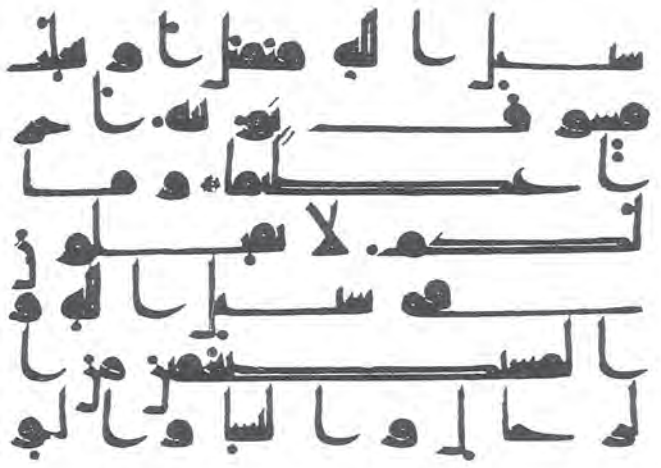 سبيل الله فيقتل او يغلب
فسوف نوتيه اجر
ا عظيما وما
لكم لا تقتلون
في سبيل الله و
المستضعفين من ا
لرجال والنسا والو